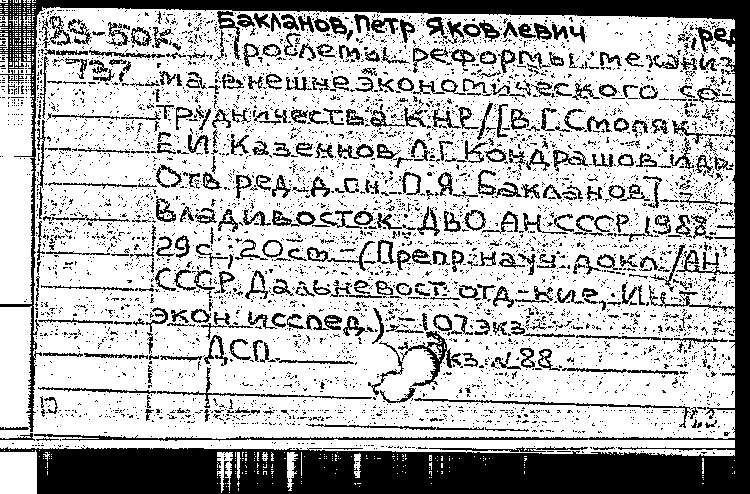 Бакланов, Петр Яковлевич, ред
89-50К Проблемы реформы механиз
737 ма внешнеэкономического со-
трудничества КНР/[В.Г.Смоляк,
Е.И. Казеннов, Л.Г.Кондрашов и др.
Отв. ред. д.г.н. П.Я. Бакланов]
Владивосток: ДВО АН СССР, 1988.-
29с.; 20см.-(Препр. науч. докл./АН
СССР. Дальневост. отд-ние, Ин-т
экон. исслед.).-107экз
ДСП кз. №88